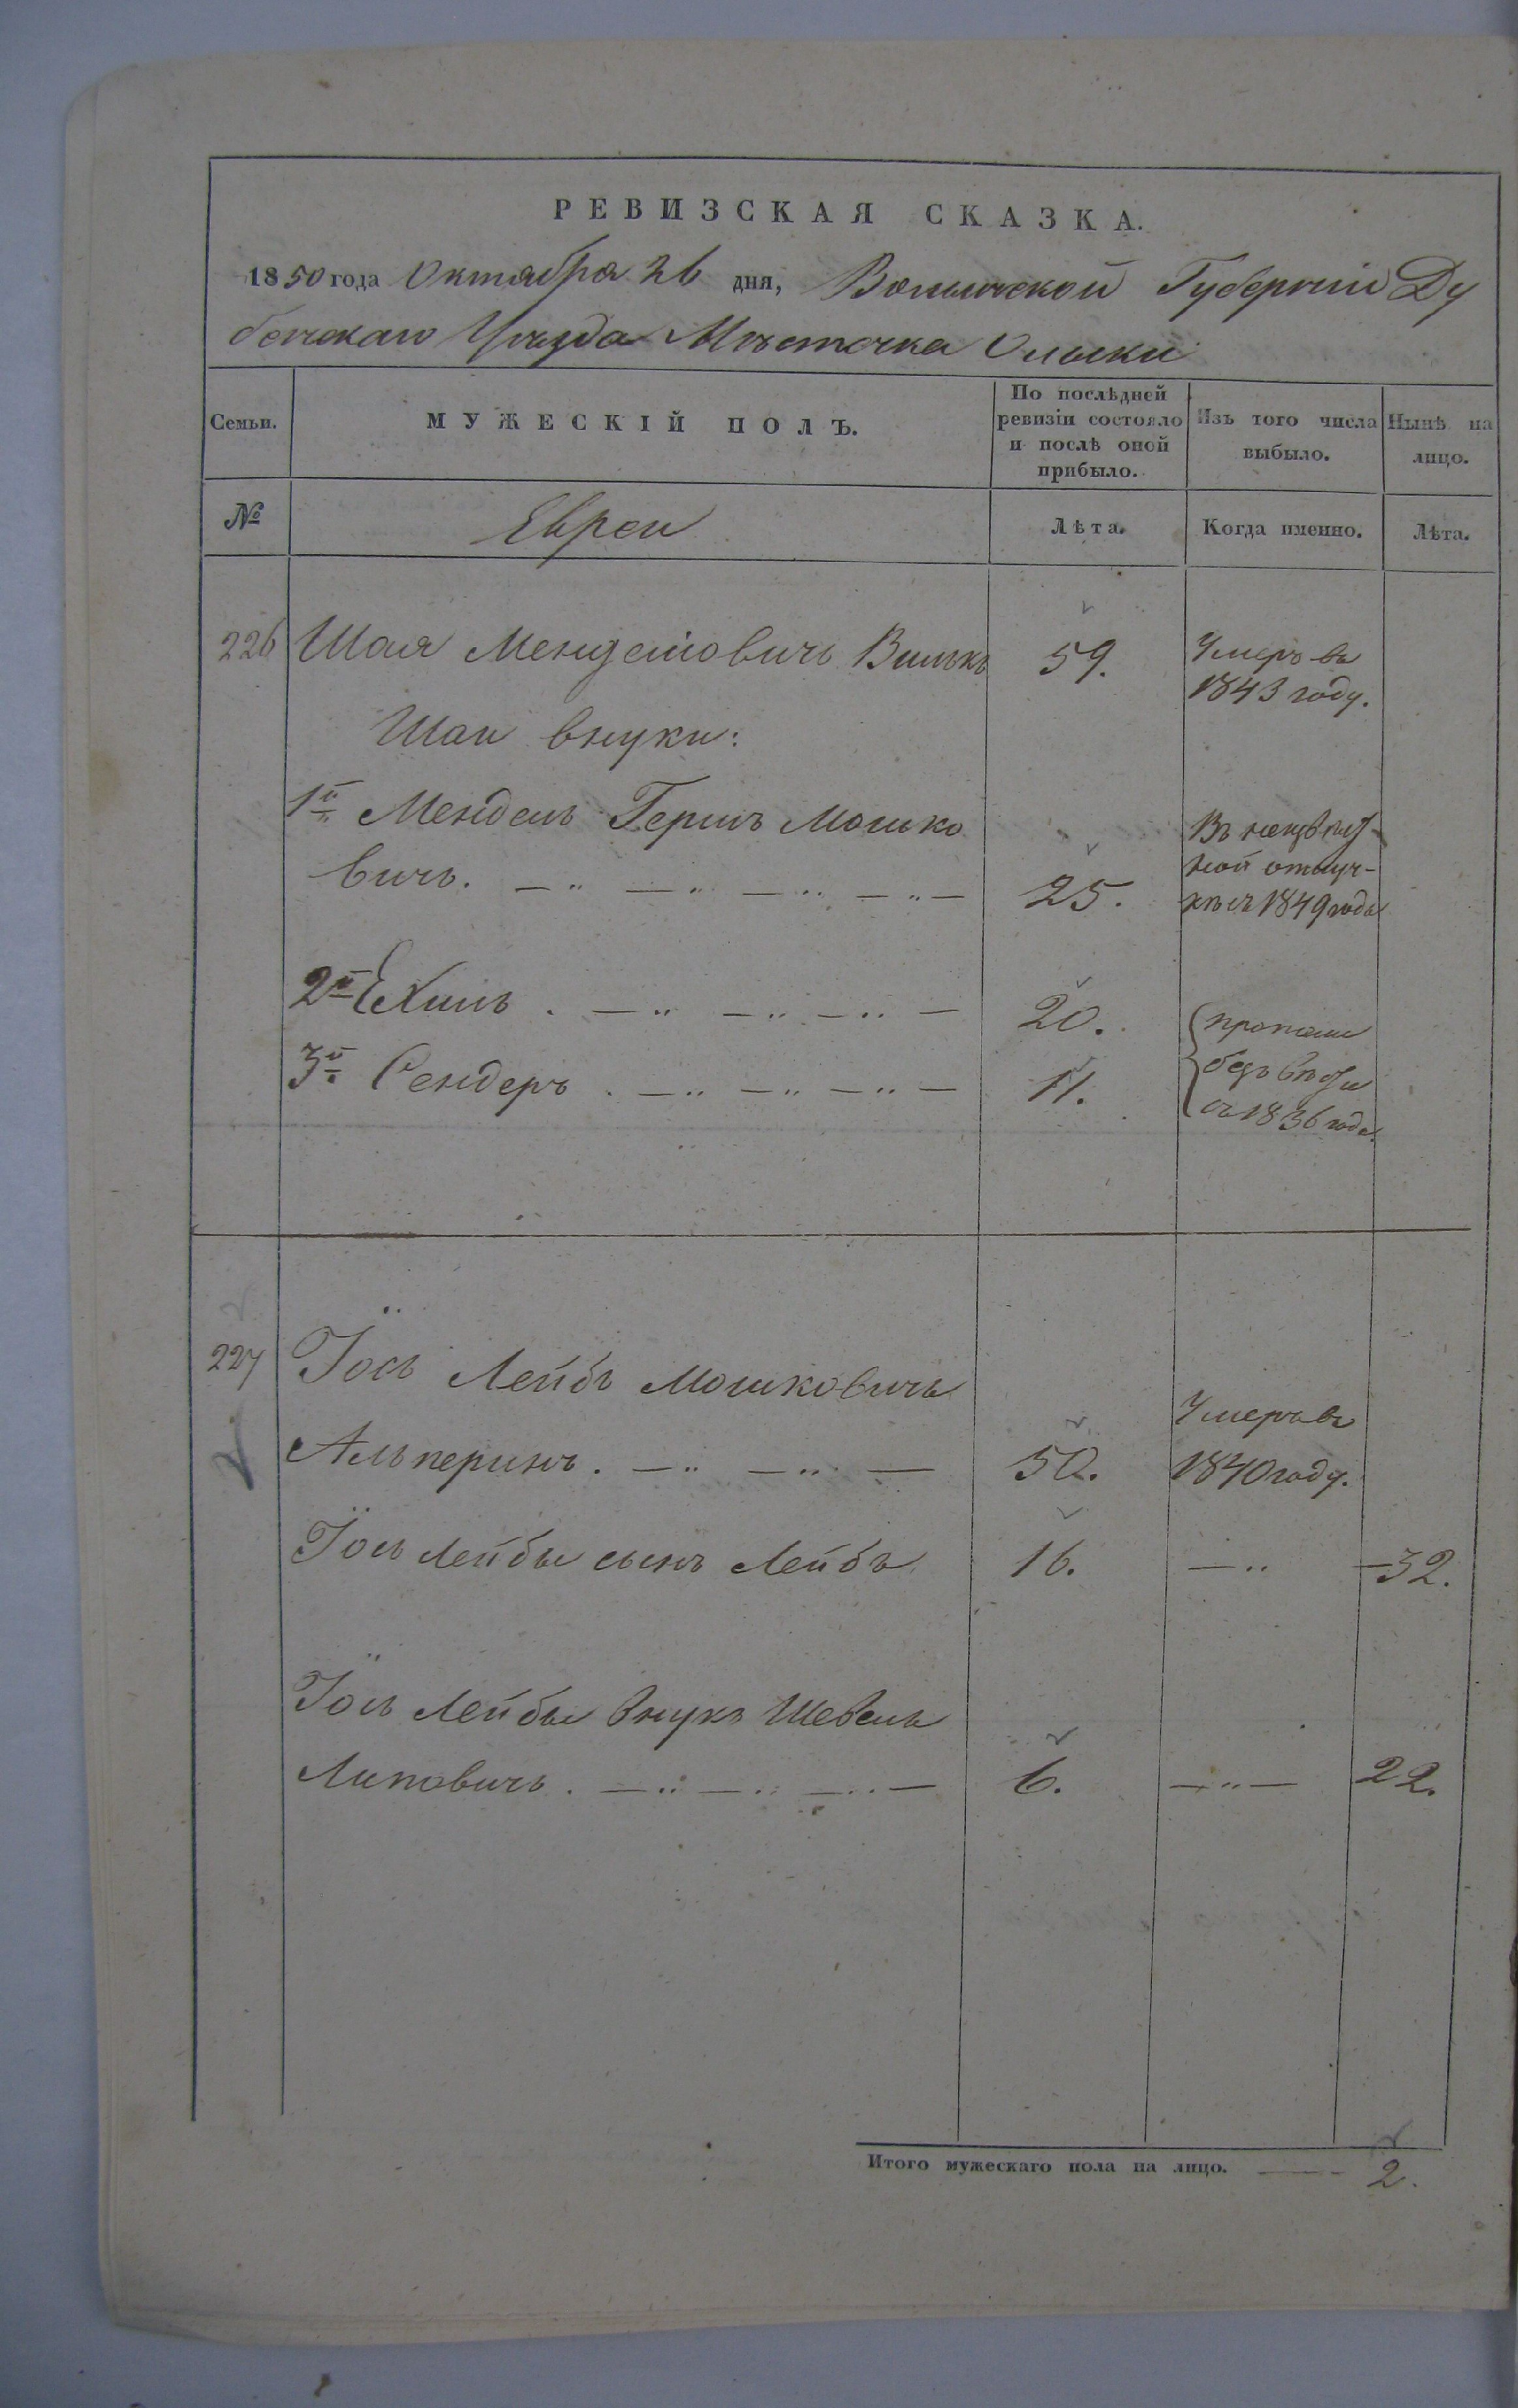 РЕВИЗСКАЯ СКАЗКА.
1850 года Октября 26 дня, Волынской Губерніи Ду
бенскаго Уѣзда Мѣстечка Олыки
Семьи.
МУЖЕСКІЙ ПОЛЪ.
По послѣдней
ревизіи состояло
и послѣ оной
прибыло.
Изъ того числа
выбыло.
Нынѣ на
лицо.
№
Евреи
Лѣта.
Когда именно.
Лѣта.
226 Шая Менделіовичъ Вилькъ 59. Умеръ въ
1843 году.
Шаи внуки:
1й Мендель Гершъ Мошко
вичъ. — " — " — " — " — 25.
Въ неизвѣст-
ной отлуч-
кѣ съ 1849 года
2й Ехиль . — " — " — " — 20.
3й Сендеръ . — " — " — " — 11.
пропали
безъ вѣсти
съ 1836 года.
227 Іось Лейбъ Мошковичъ
Альперинъ. — " — " — 50. Умеръ въ
1840 году.
Іось Лейбы сынъ Лейбъ 16. — " — 32.
Іось Лейбы внукъ Шевель
Липовичъ. — " — " — " — 6. — " — 22.
Итого мужескаго пола на лицо. — 2.